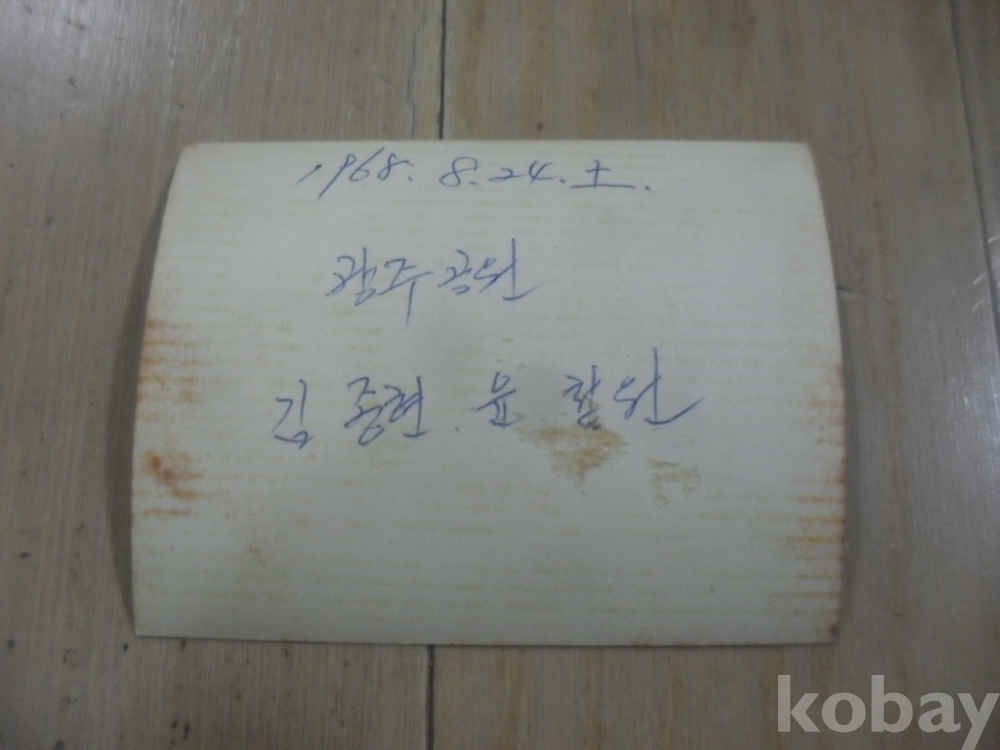 1968. 8. 24. 土.
광주공원
김종현. 윤창원
kobay